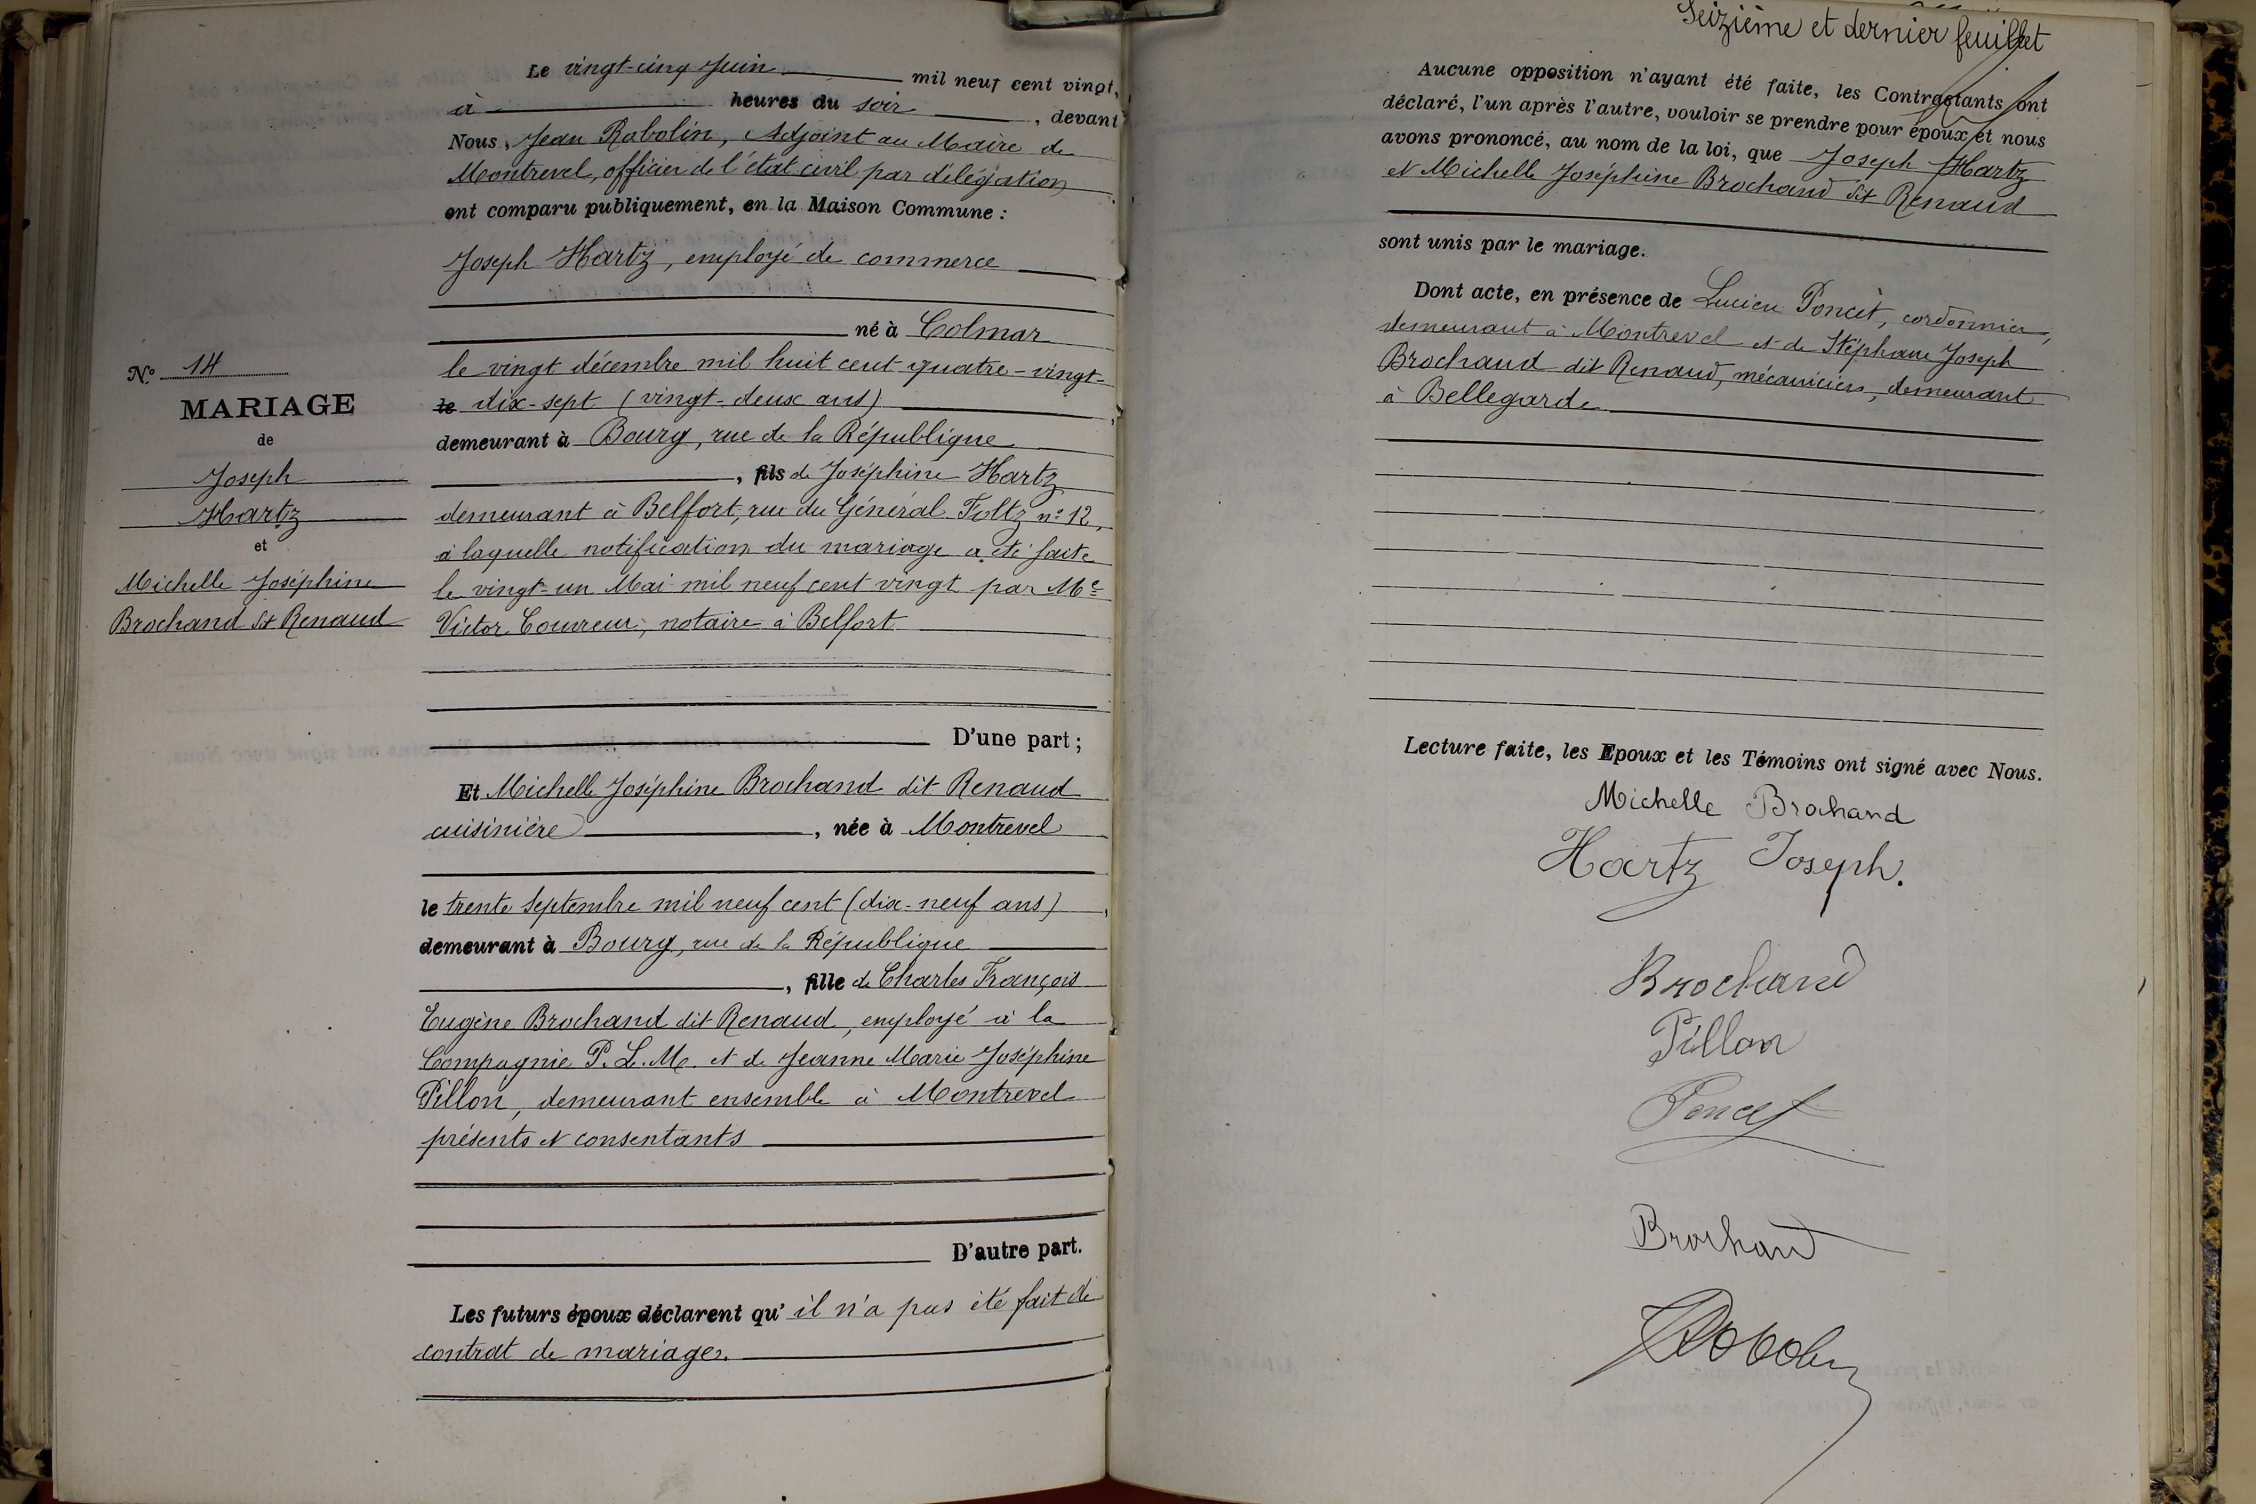 Le vingt-cinq Juin mil neuf cent vingt,
à heures du soir, devant
Nous, Jean Robolin, Adjoint au Maire de
Montrevel, officier de l'état civil par délégation
ont comparu publiquement, en la Maison Commune :
Joseph Hartz, employé de commerce
né à Colmar
le vingt décembre mil huit cent quatre-vingt-
le dix-sept (vingt-deux ans)
demeurant à Bourg, rue de la République
, fils de Joséphine Hartz
demeurant à Belfort, rue du Général Foltz n° 12,
à laquelle notification du mariage a été faite
le vingt-un Mai mil neuf cent vingt par Me
Victor Couvreur, notaire à Belfort
D'une part ;
Et Michelle Joséphine Brochand dit Renaud
cuisinière, née à Montrevel
le trente Septembre mil neuf cent (dix-neuf ans)
demeurant à Bourg, rue de la République
, fille de Charles François
Eugène Brochand dit Renaud, employé à la
Compagnie P. L. M. et de Jeanne Marie Joséphine
Pillon, demeurant ensemble à Montrevel
présents et consentants
D'autre part.
Les futurs époux déclarent qu'il n'a pas été fait de
contrat de mariage.
N° 14
MARIAGE
de
Joseph
Hartz
et
Michelle Joséphine
Brochand dit Renaud
Seizième et dernier feuillet
Aucune opposition n'ayant été faite, les Contractants ont
déclaré, l'un après l'autre, vouloir se prendre pour époux et nous
avons prononcé, au nom de la loi, que Joseph Hartz
et Michelle Joséphine Brochand dit Renaud
sont unis par le mariage.
Dont acte, en présence de Lucien Poncet, cordonnier,
demeurant à Montrevel et de Stéphane Joseph
Brochand dit Renaud, mécanicien, demeurant
à Bellegarde
Lecture faite, les Epoux et les Témoins ont signé avec Nous.
Michelle Brochand
Hartz Joseph.
Brochand
Pillon
Poncet
Brochand
Robolin